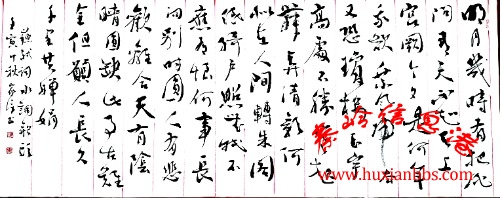 明月幾時有把酒
问青天不知天上
宫阙今夕是何年
我欲乘风
又恐瓊楼玉宇
高處不勝寒起
舞弄清影何
似在人間轉朱阁
低绮户照無眠不
應有恨何事長
向别時圓人有悲
歡離合月有陰
晴圆缺此事古難
全但願人長久
千里共嬋娟
蘇軾詞水調歌頭
秦岭信息港
www.huxianbbs.com